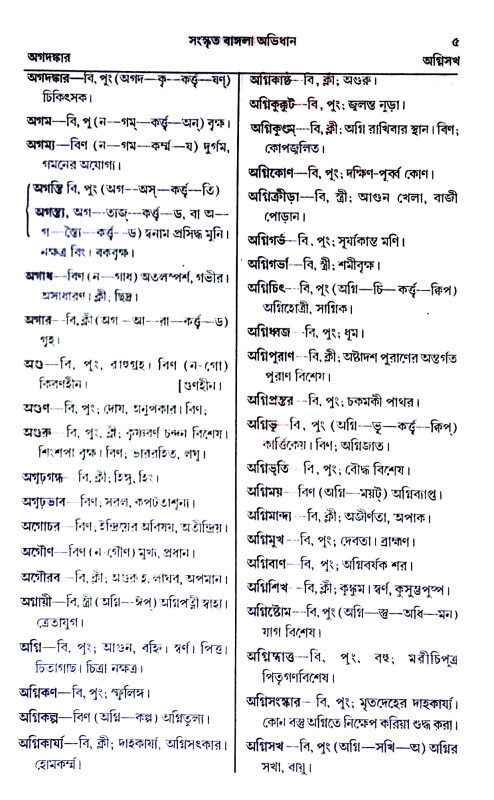 সংস্কৃত বাঙ্গলা অভিধান
৫
অগদঙ্কার
অগ্নিসখ
অগদঙ্কার—বি, পুং (অগদ—কৃ—কর্ত্তৃ—ষণ্)
চিকিৎসক।
অগম—বি, পু (ন—গম্—কর্ত্তৃ—অন্) বৃক্ষ।
অগম্য—বিণ (ন—গম—কর্ম্ম—য) দুর্গম,
গমনের অযোগ্য।
অগস্তি বি, পুং (অগ—অস্—কর্ত্তৃ—তি)
অগস্ত্য, অগ—ত্যজ্—কর্ত্তৃ—ড, বা অ—
গ—স্ত্যৈ—কর্ত্তৃ—ড) স্বনাম প্রসিদ্ধ মুনি।
নক্ষত্র বিং। বকবৃক্ষ।
অগাধ—বিণ (ন—গাধ) অতলস্পর্শ, গভীর।
অসাধারণ। ক্লী; ছিদ্র।
অগার—বি, ক্লী (অগ—আ—রা—কর্ত্তৃ—ড)
গৃহ।
অগু—বি, পুং, রাহুগ্রহ। বিণ (ন-গো)
কিরণহীন। [গুণহীন।
অগুণ—বি, পুং; দোষ, অনুপকার। বিণ;
অগুরু—বি, পুং, ক্লী; কৃষ্ণবর্ণ চন্দন বিশেষ।
শিংশপা বৃক্ষ। বিণ; ভাররহিত, লঘু।
অগূঢ়গন্ধ—বি, ক্লী; হিঙ্গু, হিং।
অগূঢ়ভাব—বিণ; সরল, কপটতাশূন্য।
অগোচর—বিণ, ইন্দ্রিয়ের অবিষয়, অতীন্দ্রিয়।
অগৌণ—বিণ (ন-গৌণ) মুখ্য, প্রধান।
অগৌরব—বি, ক্লী; অগুরুত্ব, লাঘব, অপমান।
অগ্নায়ী—বি, স্ত্রী (অগ্নি—ঈপ্) অগ্নিপত্নী স্বাহা।
ত্রেতাযুগ।
অগ্নি—বি, পুং; আগুন, বহ্নি। স্বর্ণ। পিত্ত।
চিতাগাছ। চিত্রা নক্ষত্র।
অগ্নিকণ—বি, পুং; স্ফুলিঙ্গ।
অগ্নিকল্প—বিণ (অগ্নি—কল্প) অগ্নিতুল্য।
অগ্নিকার্য্য—বি, ক্লী; দাহকার্য্য, অগ্নিসৎকার।
হোমকর্ম্ম।
অগ্নিকাষ্ঠ—বি, ক্লী; অগুরু।
অগ্নিকুক্কুট—বি, পুং; জ্বলন্ত নূড়া।
অগ্নিকুণ্ড—বি, ক্লী; অগ্নি রাখিবার স্থান। বিণ;
কোপজ্বলিত।
অগ্নিকোণ—বি, পুং; দক্ষিণ-পূর্ব্ব কোণ।
অগ্নিক্রীড়া—বি, স্ত্রী; আগুন খেলা, বাজী
পোড়ান।
অগ্নিগর্ভ—বি, পুং; সূর্য্যকান্ত মণি।
অগ্নিগর্ভা—বি, স্ত্রী; শমীবৃক্ষ।
অগ্নিচিৎ—বি, পুং (অগ্নি—চি—কর্ত্তৃ—ক্বিপ)
অগ্নিহোত্রী, সাগ্নিক।
অগ্নিধ্বজ—বি, পুং; ধূম।
অগ্নিপুরাণ—বি, ক্লী; অষ্টাদশ পুরাণের অন্তর্গত
পুরাণ বিশেষ।
অগ্নিপ্রস্তর—বি, পুং; চকমকী পাথর।
অগ্নিভূ—বি, পুং (অগ্নি—ভূ—কর্ত্তৃ—ক্বিপ্)
কার্ত্তিকেয়। বিণ; অগ্নিজাত।
অগ্নিভূতি—বি, পুং; বৌদ্ধ বিশেষ।
অগ্নিময়—বিণ (অগ্নি—ময়ট্) অগ্নিব্যাপ্ত।
অগ্নিমান্দ্য—বি, ক্লী; অজীর্ণতা, অপাক।
অগ্নিমুখ—বি, পুং; দেবতা। ব্রাহ্মণ।
অগ্নিবাণ—বি, পুং; অগ্নিবর্ষক শর।
অগ্নিশিখ—বি, ক্লী; কুঙ্কুম। স্বর্ণ, কুসুম্ভপুষ্প।
অগ্নিষ্টোম—বি, পুং (অগ্নি—স্তু—অধি—মন)
যাগ বিশেষ।
অগ্নিষ্বাত্ত—বি, পুং, বহু; মরীচিপুত্র
পিতৃগণবিশেষ।
অগ্নিসংস্কার—বি, পুং; মৃতদেহের দাহকার্য্য।
কোন বস্তু অগ্নিতে নিক্ষেপ করিয়া শুদ্ধ করা।
অগ্নিসখ—বি, পুং (অগ্নি—সখি—অ) অগ্নির
সখা, বায়ু।